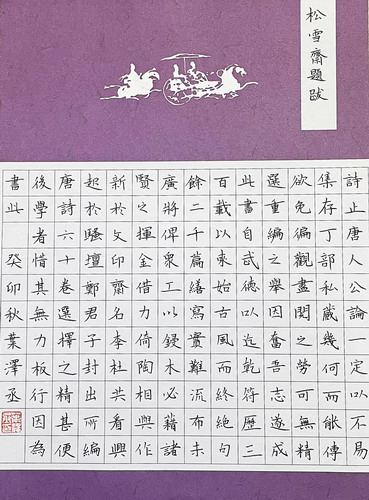 松雪齋題跋
詩止唐人公論一定以不易
集存丁部私藏幾何而能傳
欲免偏觀盡閱之勞可無精
選重編之舉因奮志遂成
此書自武德以迄乾符歷三
百載以來始古風而終絕句
餘二千篇繕寫實難流布未
廣將俾眾工以鋟木必藉諸
賢之揮金借力倚陶相與作
新於文印齋名李杜共看興
起於騷壇鄭君子封出所編
唐詩六十卷選擇之精甚便
後學者惜其無力板行因為
書此 癸卯秋葉澤丞